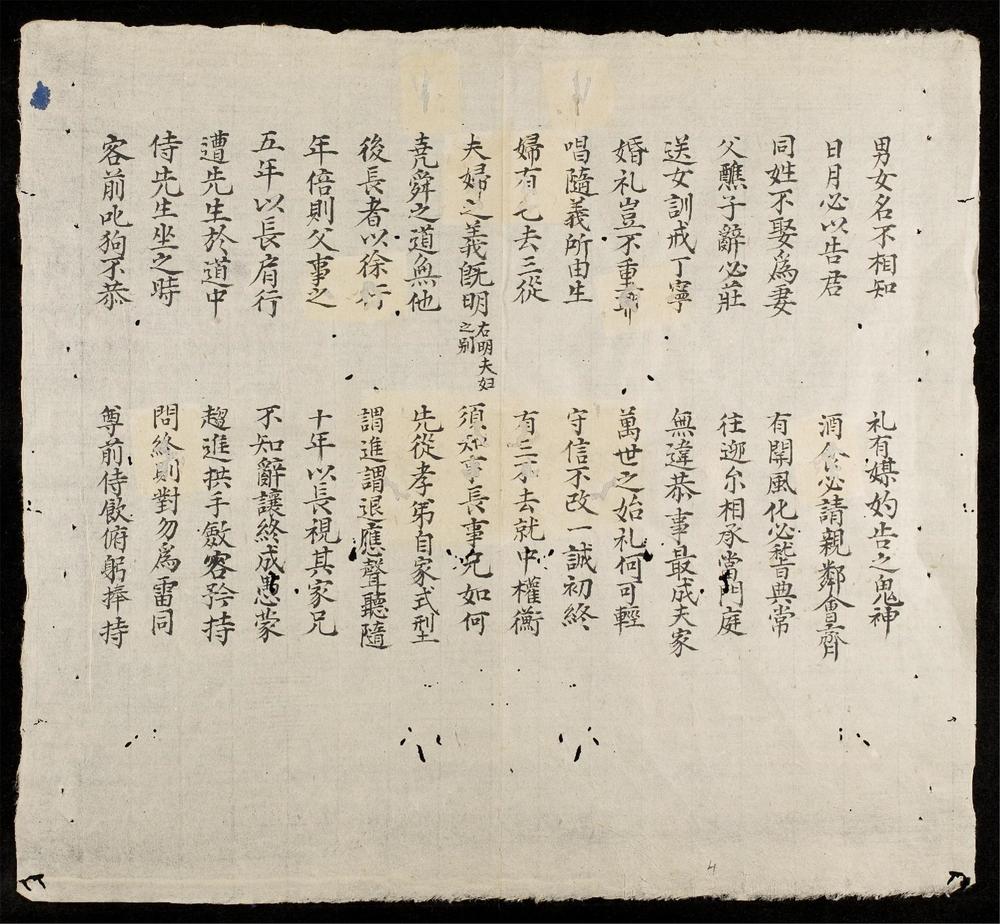 男女名不相知 礼有媒妁告之鬼神
日月必以告君 酒食必請親鄰會齊
同姓不娶爲妻 有関風化必稽典常
父醮子辭必莊 往迎尒相承當門庭
送女訓戒丁寧 無違恭事最成夫家
婚礼豈不重 萬世之始礼何可輕
唱隨義所由生 守信不改一誠初終
婦有七去三從 有三不去就中權衡
夫婦之義旣明 右明夫妇之别 須知事長事兄如何
堯舜之道無他 先從孝弟自家式型
後長者以徐行 謂進謂退應聲聽隨
年倍則父事之 十年以長視其家兄
五年以長肩行 不知辭讓終成愚蒙
遭先生於道中 趨進拱手斂容矜持
侍先生坐之時 問終則對勿爲雷同
客前叱狗不恭 尊前侍飮俯躬捧持
4